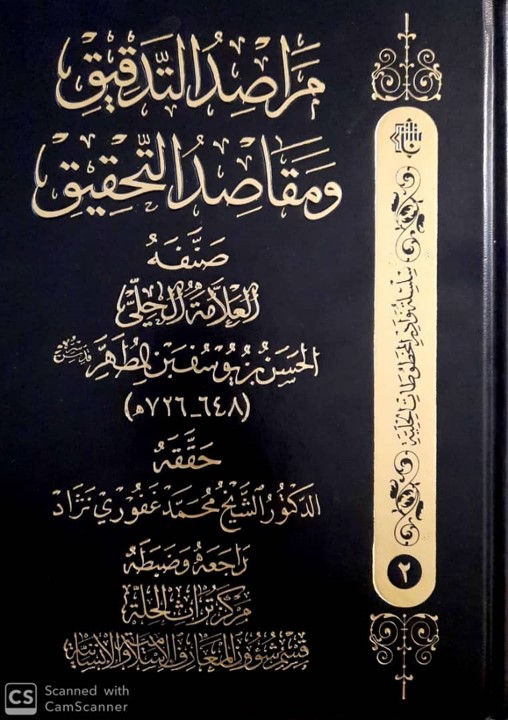 مَرَاصِدُ التَّدقِيقِ
وَمَقَاصِدُ التَّحقِيقِ
صَنَّفَهُ
العَلَّامَةُ الحِلِّيّ
الحَسَنُ بْنُ يُوسُفَ بْنِ المُطَهَّرِ
(٦٤٨-٧٢٦هـ)
حَقَّقَهُ
الدكتُورُ الشَّيخُ مُحَمَّد غَفُورِي نَژَاد
رَاجَعَهُ وَضَبَطَهُ
مَركَزُ تُرَاثِ الحِلَّةِ
قِسمُ شُؤُونِ المَعَارِفِ الإِسلَامِيَّةِ وَالإِنسَانِيَّةِ
سِلسِلَةُ نَوَادِرِ المَخطُوطَاتِ الحِلِّيَّةِ
٢
CS Scanned with
CamScanner